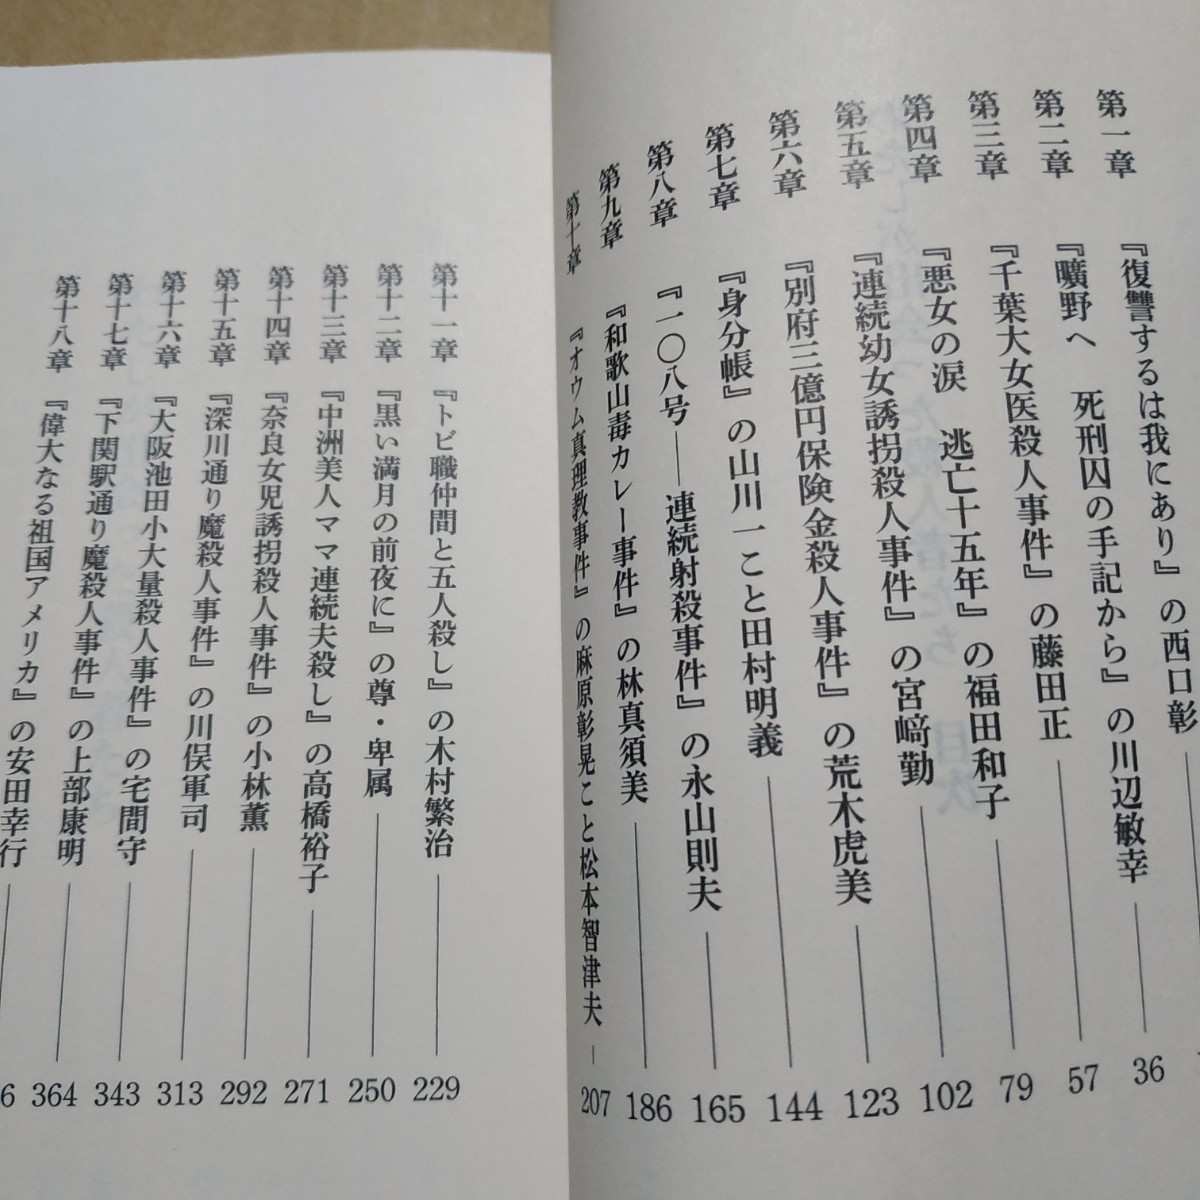 第一章 『復讐するは我にあり』の西口彰
第二章 『曠野へ 死刑囚の手記から』の川辺敏幸 36
第三章 『千葉大女医殺人事件』の藤田正 57
第四章 『悪女の涙 逃亡十五年』の福田和子 79
第五章 『連続幼女誘拐殺人事件』の宮﨑勤 102
第六章 『別府三億円保険金殺人事件』の荒木虎美 123
第七章 『身分帳』の山川一こと田村明義 144
第八章 『一〇八号――連続射殺事件』の永山則夫 165
第九章 『和歌山毒カレー事件』の林真須美 186
第十章 『オウム真理教事件』の麻原彰晃こと松本智津夫 207
第十一章 『トビ職仲間と五人殺し』の木村繁治 229
第十二章 『黒い満月の前夜に』の尊・卑属 250
第十三章 『中洲美人ママ連続夫殺し』の高橋裕子 271
第十四章 『奈良女児誘拐殺人事件』の小林薫 292
第十五章 『深川通り魔殺人事件』の川俣軍司 313
第十六章 『大阪池田小大量殺人事件』の宅間守 343
第十七章 『下関駅通り魔殺人事件』の上部康明 364
第十八章 『偉大なる祖国アメリカ』の安田幸行 6